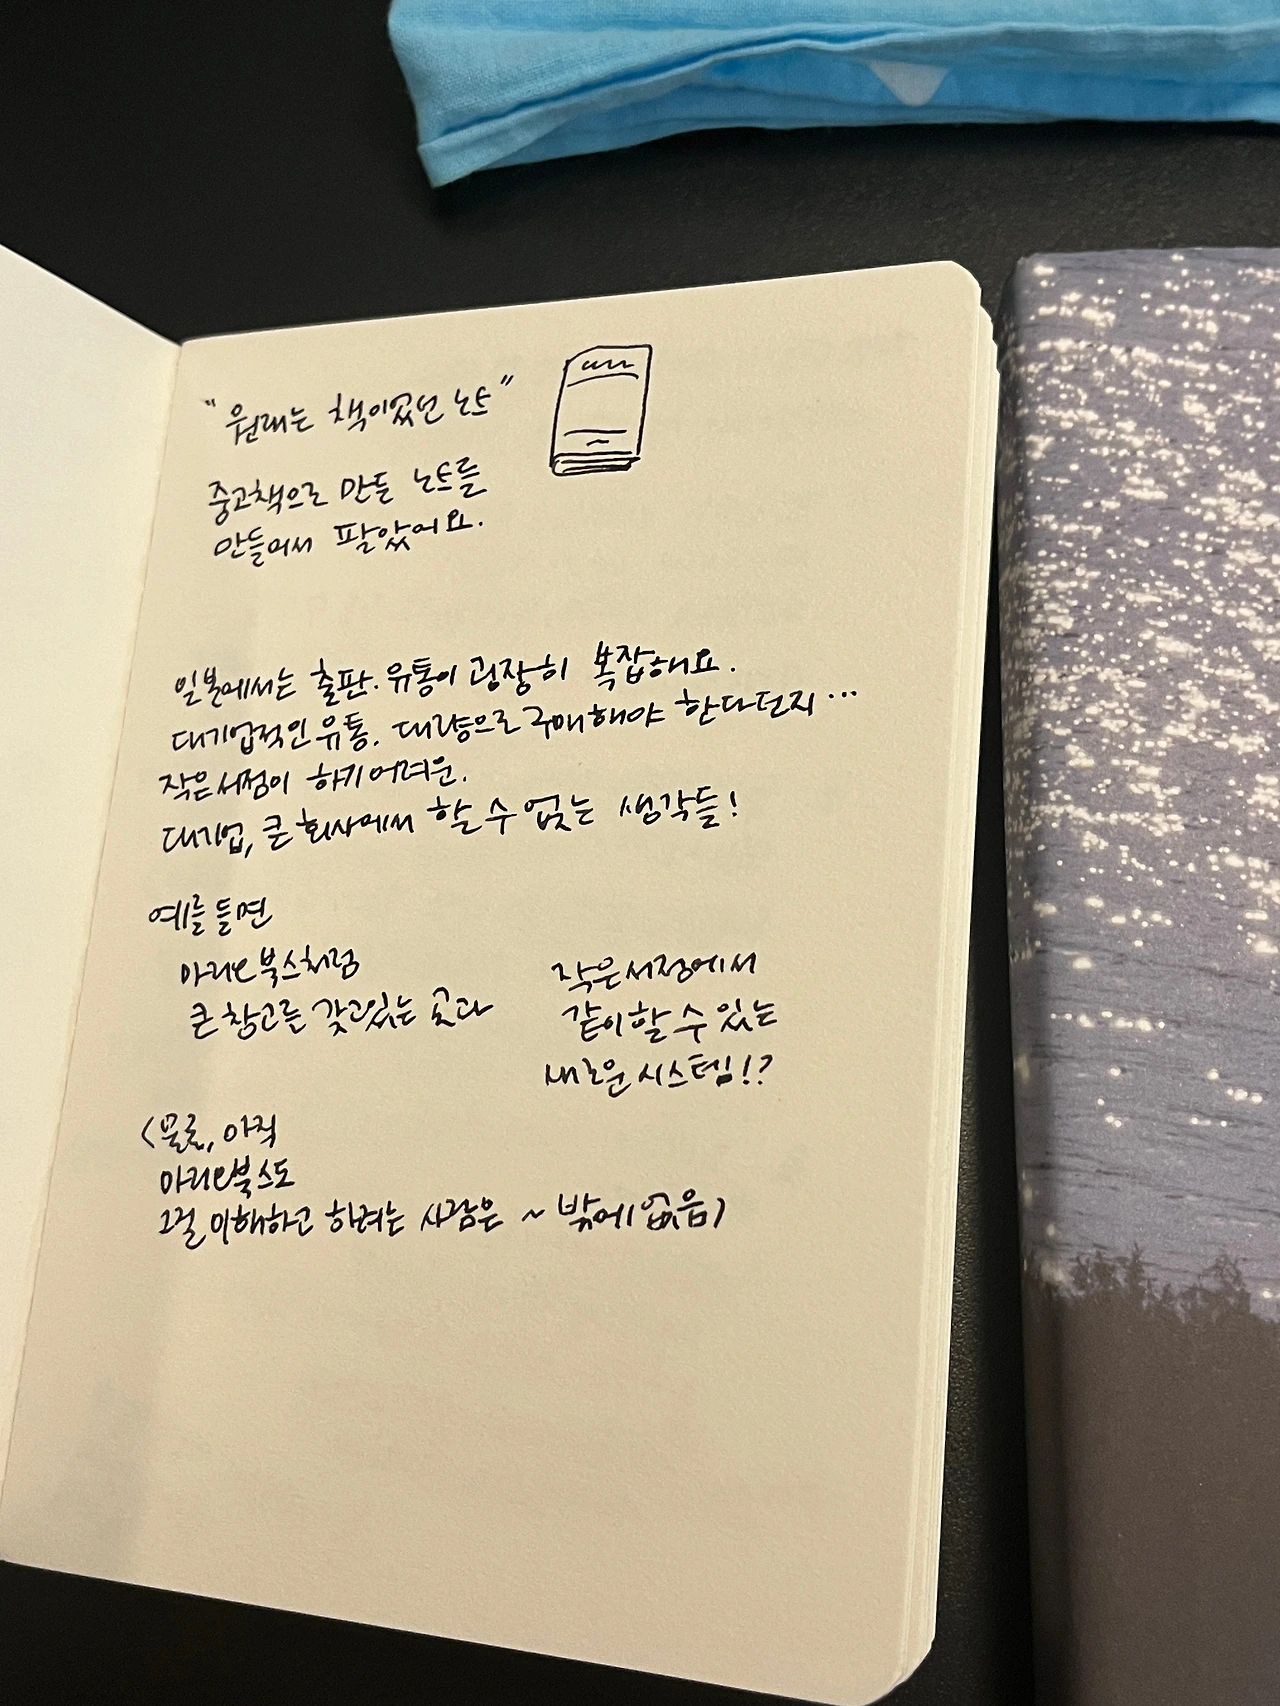 "원래는 책이었던 노트"
중고책으로 만든 노트를
만들어서 팔았어요.
일본에서는 출판·유통이 굉장히 복잡해요.
대기업적인 유통. 대량으로 구매해야 한다던지…
작은 서점이 하기 어려운.
대기업, 큰 회사에서 할 수 없는 생각들!
예를 들면
아리언북스처럼
큰 창고를 갖고있는 곳과
작은 서점에서
같이 할 수 있는
새로운 시스템!?
(물론, 아직
아리언북스도
그걸 이해하고 하려는 사람은 ~ 밖에 없음)